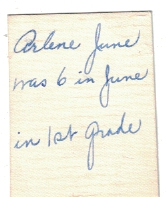 Arlene June
was 6 in June
in 1st grade